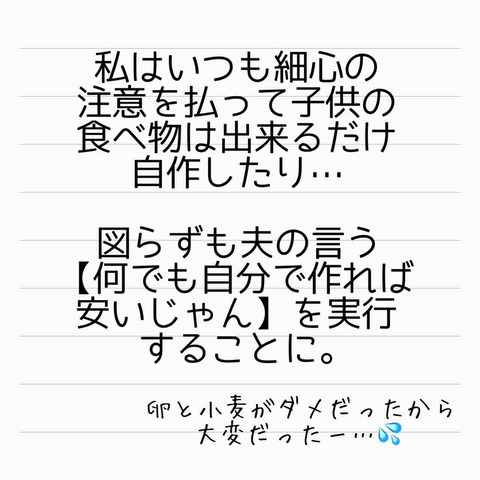 私はいつも細心の
注意を払って子供の
食べ物は出来るだけ
自作したり…
図らずも夫の言う
【何でも自分で作れば
安いじゃん】を実行
することに。
卵と小麦がダメだったから
大変だったー…💦